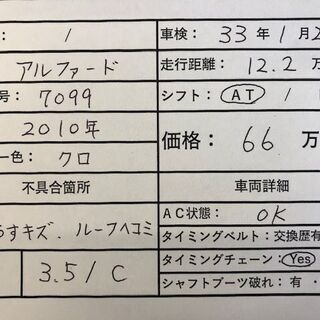 : / 車検: 33年1月2
アルファード 走行距離: 12.2万
号: 7099 シフト: AT /
2010年 価格: 66万
ー色: クロ
不具合箇所 車両詳細
うすキズ、ルーフヘコミ AC状態: OK
タイミングベルト: 交換歴有
3.5/C タイミングチェーン: Yes
シャフトブーツ破れ: 有・